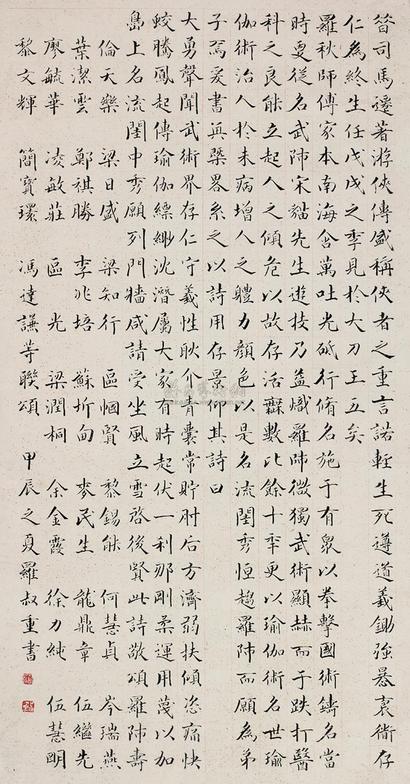 昔司馬遷著游俠傳盛稱俠者之重言諾輕生死遵道義鋤強暴哀衛存
仁為終生任戊戌之季見於大刀王五矣
羅秋師傅家本南海含萬吐光砥行脩名施于有眾以拳擊國術鑄名當
時更從名武師宋貓先生遊技乃益熾羅師微獨武術顯赫而于跌打醫
科之良能立起人之傾危以故存活無數比餘十年更以瑜伽術名世瑜
伽術治人於未病增人之體力顏色以是名流閨秀恒趨羅師而願為弟
子焉爰書其槩畧系之以詩用存景仰其詩曰
大勇聲聞武術界存仁守義性耿介青囊常貯肘后方濟弱扶傾恣痛快
蛟騰鳳起傳瑜伽縹緲沈潛屬大家有時起伏一利那剛柔運用蔑以加
島上名流閨中秀願列門牆咸請受坐風立雪啓後賢此詩敬頌羅師壽
倫天樂 梁日盛 梁知行 區悃賢 黎錫能 何慧貞 岑瑞燕
葉潔雲 鄭祺勝 李兆培 蘇圻甸 麥民生 龍鼎章 伍繼先
廖毓華 凌敏莊 區光 梁潤桐 余金霞 徐力純 伍慧明
黎文輝 簡寶環 馮達謙等聯頌 甲辰之夏羅叔重書